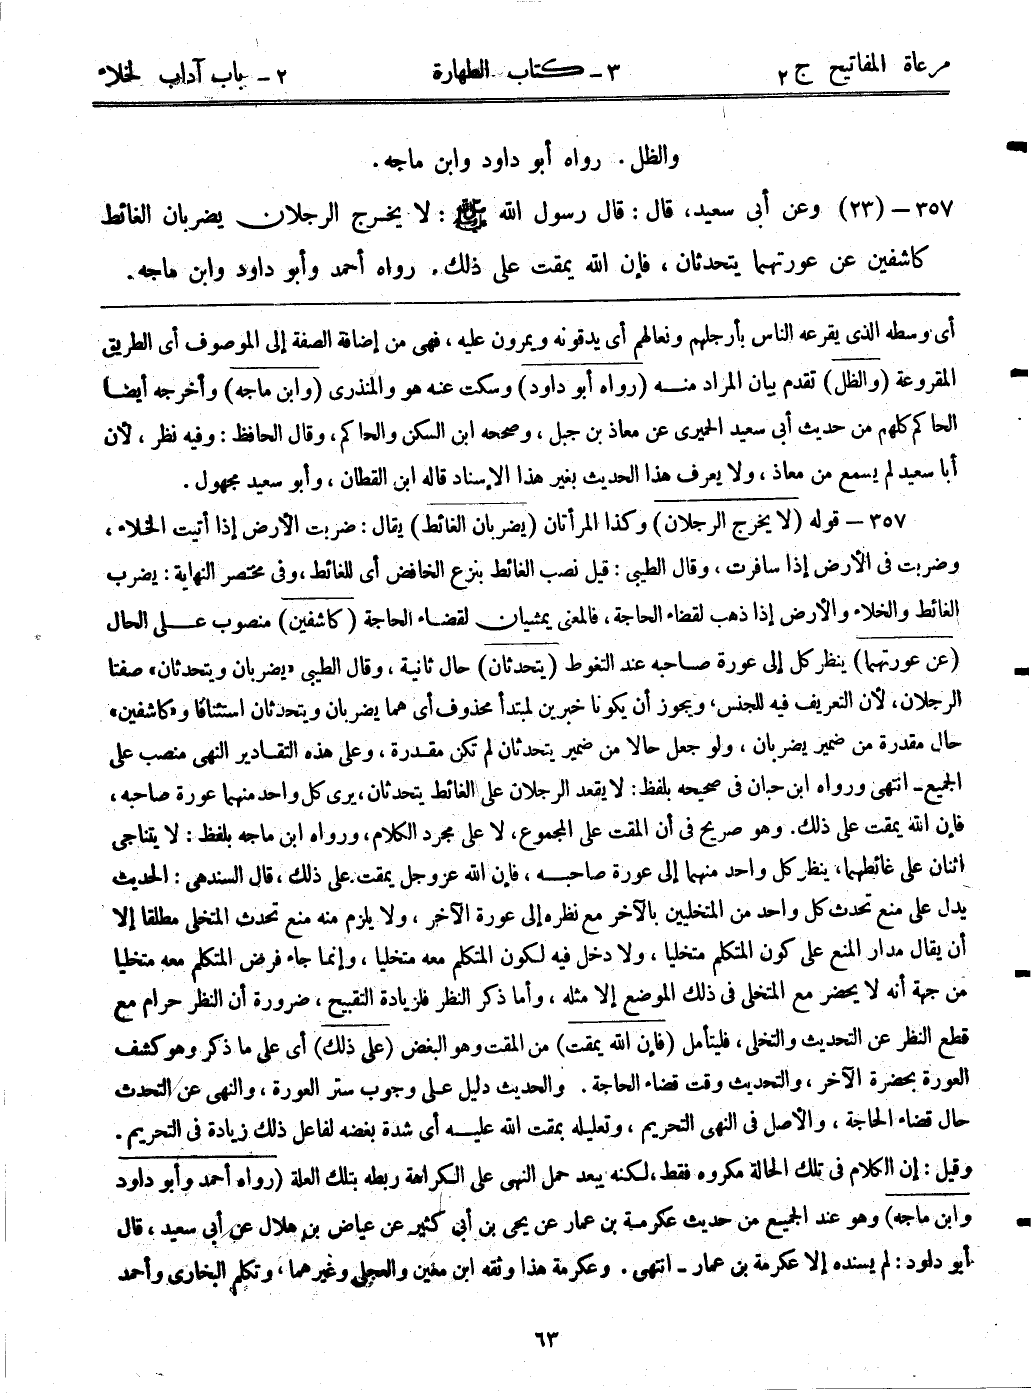 مرعاة المفاتيح ج ٢
٣ - كتاب الطهارة
٢ - باب آداب الخلاء
والظل . رواه أبو داود وابن ماجه .
٣٥٧ - (٢٣) وعن أبى سعيد، قال : قال رسول الله ﷺ : لا يخرج الرجلان يضربان الغائط
كاشفين عن عورتهما يتحدثان ، فإن الله يمقت على ذلك . رواه أحمد وأبو داود وابن ماجه .
أى وسطه الذى يقرعه الناس بأرجلهم ونعالهم أى يدقونه ويمرون عليه ، فهى من إضافة الصفة إلى الموصوف أى الطريق
المقروعة (والظل) تقدم بيان المراد منه (رواه أبو داود) وسكت عنه هو والمنذرى (وابن ماجه) وأخرجه أيضا
الحاكم كلهم من حديث أبى سعيد الحميرى عن معاذ بن جبل ، وصححه ابن السكن والحاكم ، وقال الحافظ : وفيه نظر ، لأن
أبا سعيد لم يسمع من معاذ ، ولا يعرف هذا الحديث بغير هذا الإسناد قاله ابن القطان ، وأبو سعيد مجهول .
٣٥٧ - قوله (لا يخرج الرجلان) وكذا المرأتان (يضربان الغائط) يقال : ضربت الأرض إذا أتيت الخلاء ،
وضربت فى الأرض إذا سافرت ، وقال الطيبى : قيل نصب الغائط بنزع الخافض أى للغائط، وفى مختصر النهاية : يضرب
الغائط والخلاء والأرض إذا ذهب لقضاء الحاجة ، فالمعنى يمشيان لقضاء الحاجة (كاشفين) منصوب على الحال
(عن عورتهما) ينظر كل إلى عورة صاحبه عند التغوط (يتحدثان) حال ثانية ، وقال الطيبى «يضربان ويتحدثان» صفتا
الرجلان، لأن التعريف فيه للجنس، ويجوز أن يكونا خبرين لمبتدأ محذوف أى هما يضربان ويتحدثان استئنافا و«كاشفين»
حال مقدرة من ضمير يضربان ، ولو جعل حالا من ضمير يتحدثان لم تكن مقدرة ، وعلى هذه التقادير النهى منصب على
الجميع- انتهى ورواه ابن حبان فى صحيحه بلفظ : لا يقعد الرجلان على الغائط يتحدثان، يرى كل واحد منهما عورة صاحبه ،
فإن الله يمقت على ذلك. وهو صريح فى أن المقت على المجموع، لا على مجرد الكلام، ورواه ابن ماجه بلفظ : لا يتناجى
اثنان على غائطهما، ينظر كل واحد منهما إلى عورة صاحبه ، فإن الله عزوجل يمقت على ذلك ، قال السندهى : الحديث
يدل على منع تحدث كل واحد من المتخليين بالآخر مع نظره إلى عورة الآخر ، ولا يلزم منه منع تحدث المتخلى مطلقا إلا
أن يقال مدار المنع على كون المتكلم متخليا ، ولا دخل فيه لكون المتكلم معه متخليا ، وإنما جاء فرض المتكلم معه متخليا
من جهة أنه لا يحضر مع المتخلى فى ذلك الموضع إلا مثله ، وأما ذكر النظر فلزيادة التقبيح ، ضرورة أن النظر حرام مع
قطع النظر عن التحديث والتخلى، فليتأمل (فإن الله يمقت) من المقت وهو البغض (على ذلك) أى على ما ذكر وهو كشف
العورة بحضرة الآخر ، والتحديث وقت قضاء الحاجة . والحديث دليل على وجوب ستر العورة ، والنهى عن التحدث
حال قضاء الحاجة ، والأصل فى النهى التحريم ، وتعليله بمقت الله عليه أى شدة بغضه لفاعل ذلك زيادة فى التحريم .
وقيل : إن الكلام فى تلك الحالة مكروه فقط، لكنه يبعد حمل النهى على الكراهة ربطه بتلك العلة (رواه أحمد وأبو داود
وابن ماجه) وهو عند الجميع من حديث عكرمة بن عمار عن يحيى بن أبى كثير عن عياض بن هلال عن أبى سعيد ، قال
أبو داود : لم يسنده إلا عكرمة بن عمار - انتهى . وعكرمة هذا وثقه ابن معين والعجلى وغيرهما ، وتكلم البخارى وأحمد
٦٣